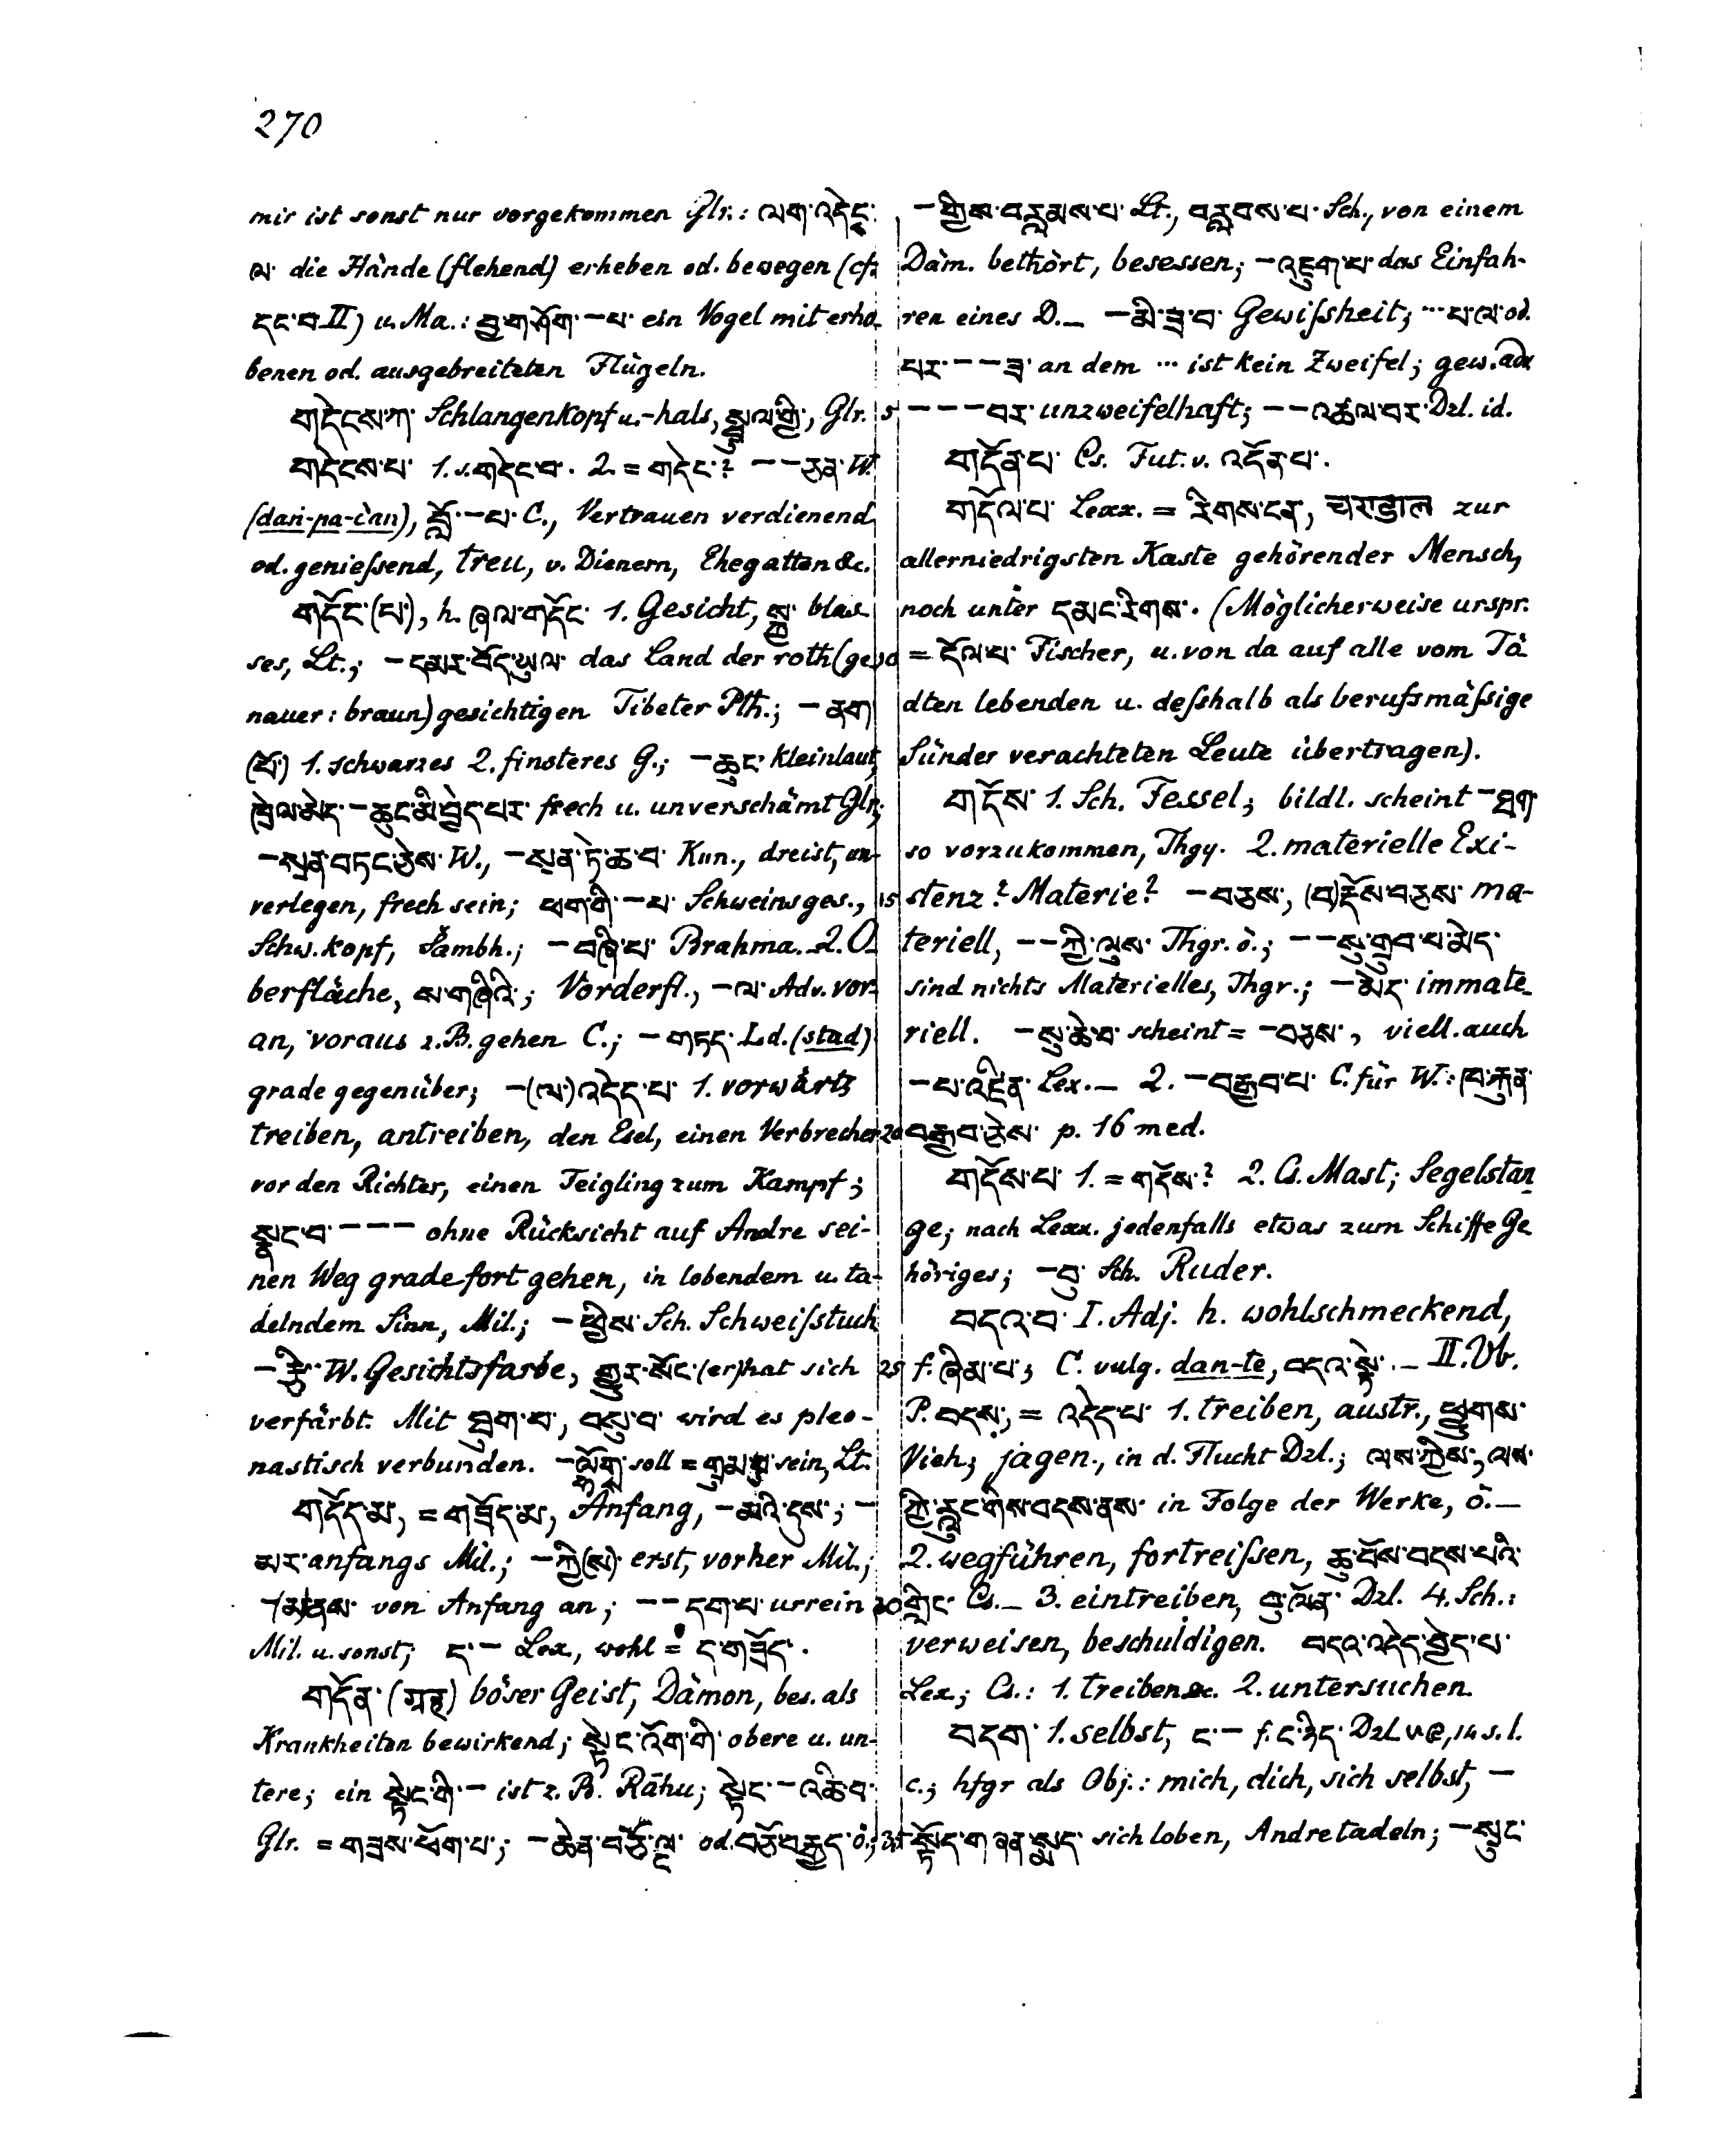 270
mir ist sonst nur vorgekommen Glr.: ལག་འདེང་
ལ་ die Hände (flehend) erheben od. bewegen (cf.
དང་བ་ II) u. Ma.: བྱ་གཤོག་ – པ་ ein Vogel mit erho-
benen od. ausgebreiteten Flügeln.
གདེངས་ཀ་ Schlangenkopf u. -hals, སྦྲུལ་གྱི་, Glr.
གདེངས་པ་ 1. v. གདེང་བ་. 2. = གདེང་? – – ཅན་ W.
(dań-pa-c̀an), བློ་ – པ་ C., Vertrauen verdienend
od. genießend, treu, v. Dienern, Ehegatten &c.
གདོང་(པ་), h. ཞལ་གདོང་ 1. Gesicht, སྐྱ་ blas-
ses, Lt.; – དམར་བོད་ཡུལ་ das Land der roth (ge-
nauer: braun) gesichtigen Tibeter Pth.; – ནག
(པོ་) 1. schwarzes 2. finsteres G.; – ཆུང་ kleinlaut,
ཁྲེལ་མེད་ – ཆུང་མི་བྱེད་པར་ frech u. unverschämt Glr.;
– སྲན་བཏང་ཅེས་ W., – སྲན་ཏེ་ཆ་བ་ Kun., dreist, un-
verlegen, frech sein; ཕག་གི་ – པ་ Schweinsges.,
Schw.kopf, Sambh.; – བཞི་པ་ Brahma. – 2. O-
berfläche, ས་གཞིའི་; Vorderfl., – ལ་ Adv. vor-
an, voraus z.B. gehen C.; – གཏད་ Ld. (stad)
grade gegenüber; – (ལ་)འདེད་པ་ 1. vorwärts
treiben, antreiben, den Esel, einen Verbrecher
vor den Richter, einen Feigling zum Kampf;
སྣང་བ་ – – – ohne Rücksicht auf Andre sei-
nen Weg grade fort gehen, in lobendem u. ta-
delndem Sinn, Mil.; – ཕྱིས་ Sch. Schweißtuch
– རྩི་ W. Gesichtsfarbe, གྱུར་སོང་ (er) hat sich
verfärbt. Mit ཐུག་པ་, བསུ་བ་ wird es pleo-
nastisch verbunden. – soll = sein, Lt.
གདོད་མ་, = གཟོད་མ་, Anfang, – མའི་དུས་; –
མར་ anfangs Mil.; – ཀྱི(ས)་ erst, vorher Mil.;
– (མ)ནས་ von Anfang an; – – དག་པ་ urrein
Mil. u. sonst; ད་ – Lex., wohl = ད་གཟོད་.
གདོན་ (ग्रह) böser Geist, Dämon, bes. als
Krankheiten bewirkend; སྟེང་འོག་གི་ obere u. un-
tere; ein སྟེང་གི་ – ist z. B. Rāhu; སྟེང་ – འཆི་བ་
Glr. = གཟས་ཕོག་པ་; – ཆེན་བཅོ་ལྔ་ od. བཅོ་བརྒྱད་ ö.;
– གྱིས་བརླམས་པ་ Lt., བརླབས་པ་ Sch., von einem
Däm. bethört, besessen; – འཇུག་པ་ das Einfah-
ren eines D. – – མི་ཟ་བ་ Gewißheit; ... པ་ལ་ od.
པར་ – – ཟ་ an dem ... ist kein Zweifel; gew. adv.
5 – – – བར་ unzweifelhaft; – – འཚལ་བར་ Dzl. id.
གདོན་པ་ Cs. Fut. v. འདོན་པ་.
གདོལ་པ་ Lexx. = རིགས་ངན་, चण्डाल zur
allerniedrigsten Kaste gehörender Mensch,
noch unter དམང་རིགས་. (Möglicherweise urspr.
10 = དོལ་པ་ Fischer, u. von da auf alle vom Tö-
dten lebenden u. deßhalb als berufsmäßige
Sünder verachteten Leute übertragen).
གདོས་ 1. Sch. Fessel; bildl. scheint – ཐག་
so vorzukommen, Thgy. 2. materielle Exi-
15 stenz? Materie? – བཅས་, (བ)རྡོས་བཅས་ ma-
teriell, – – ཀྱི་ལུས་ Thgr. ö.; – – སུ་གྲུབ་པ་མེད་
sind nichts Materielles, Thgr.; – མེད་ immate-
riell. – སུ་ཆེ་བ་ scheint = – བཅས་, viell. auch
– པ་འཛིན་ Lex. – 2. – བརྒྱབ་པ་ C. für W.: ཁ་རྐུན་
20 བརྒྱབ་ཅེས་ p. 16 med.
གདོས་པ་ 1. = གདོས་? 2. Cs. Mast; Segelstan-
ge; nach Lexx. jedenfalls etwas zum Schiffe Ge-
höriges; – བུ་ Sch. Ruder.
བདའ་བ་ I. Adj. h. wohlschmeckend,
25 f. ཞིམ་པ་; C. vulg. dan-te, བདའ་སྟེ་. – II. Vb.
P. བདས་, = འདེད་པ་ 1. treiben, austr., ཕྱུགས་
Vieh; jagen, in d. Flucht Dzl.; ལས་ཀྱིས་, ལས་
ཀྱི་རླུང་གིས་བདས་ནས་ in Folge der Werke, ö. –
2. wegführen, fortreißen, ཆུ་བོས་བདས་པའི་
30 གླིང་ Cs. – 3. eintreiben, བུ་ལོན་ Dzl. 4. Sch.:
verweisen, beschuldigen. བདའ་འདེད་བྱེད་པ་
Lex.; Cs.: 1. treiben &c. 2. untersuchen.
བདག་ 1. selbst, ང་ – f. ང་ཉིད་ Dzl. , 14 s. l.
c.; hfgr als Obj.: mich, dich, sich selbst, –
35 སྟོད་གཞན་སྨད་ sich loben, Andre tadeln; – སྲུང་